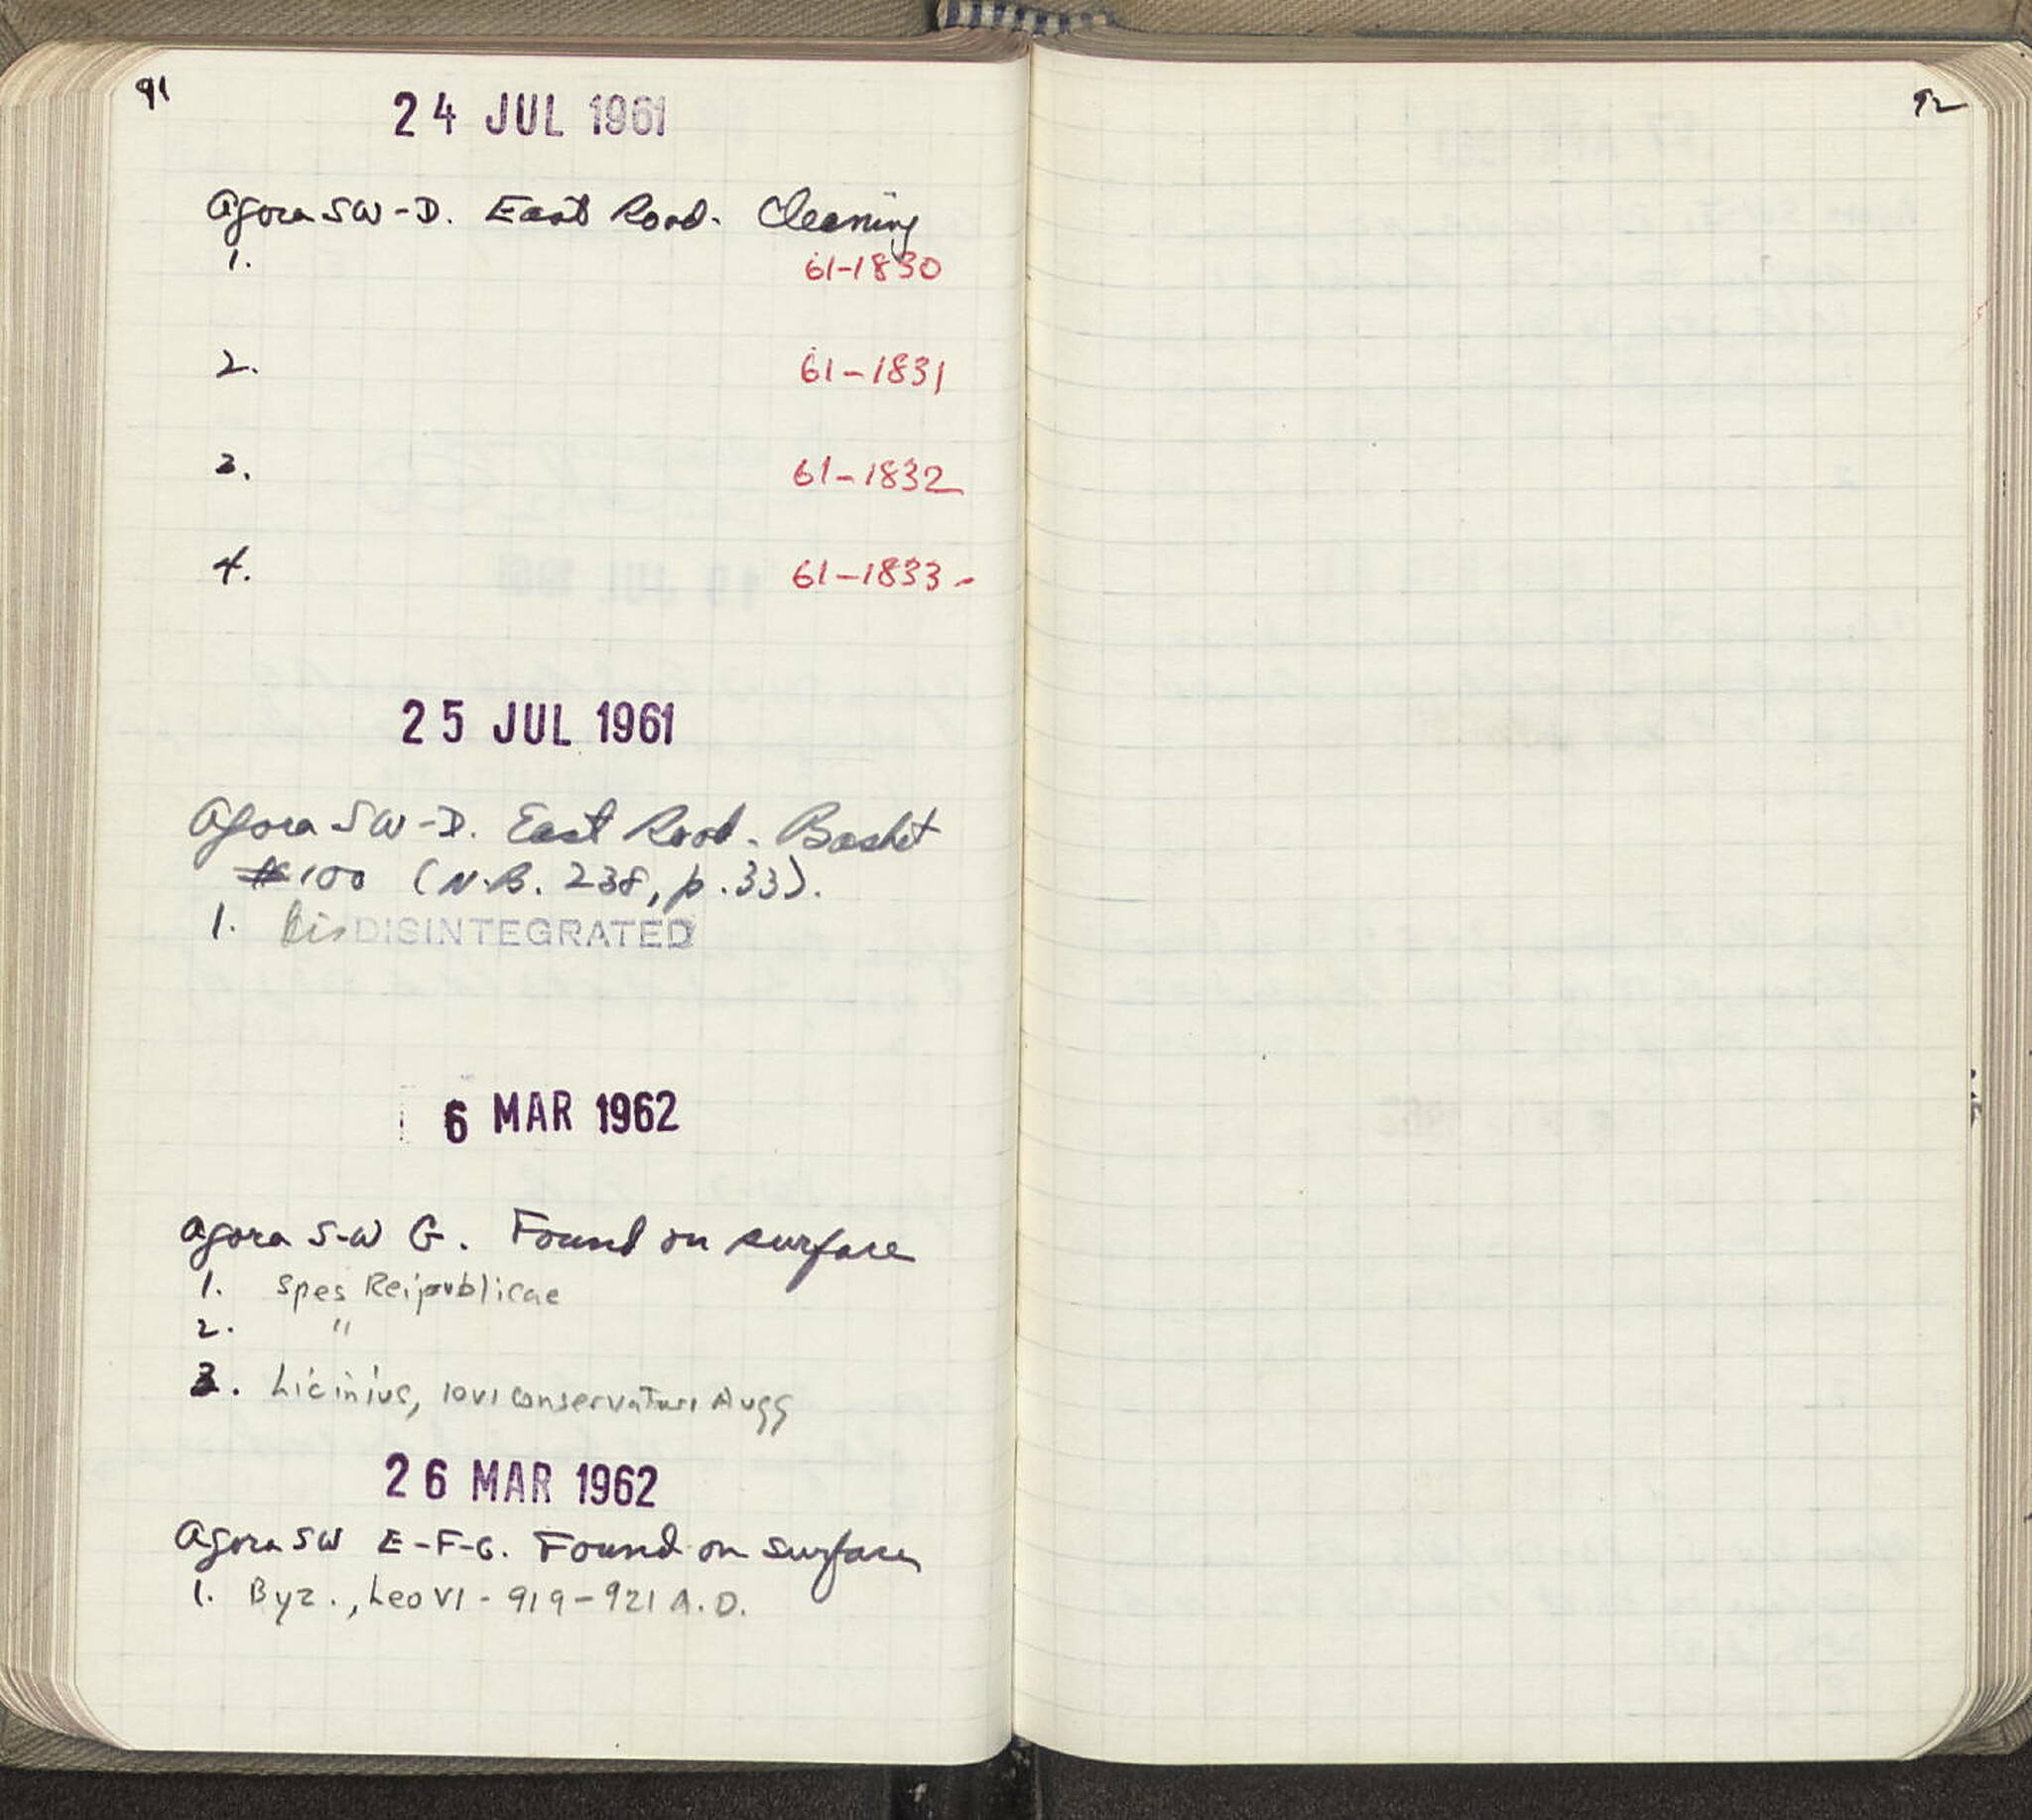 91
24 JUL 1961
Agora SW-D. East Road. Cleaning
1. 61-1830
2. 61-1831
3. 61-1832
4. 61-1833-
25 JUL 1961
Agora SW-D. East Road. Basket
#100 (N.B. 238, p.33).
1. Dis DISINTEGRATED
6 MAR 1962
Agora S-W G. Found on surface
1. Spes Reipublicae
2. "
3. Licinius, IOVI conservatori Augg
26 MAR 1962
Agora SW E-F-G. Found on surface
1. Byz., Leo VI - 919-921 A.D.
92